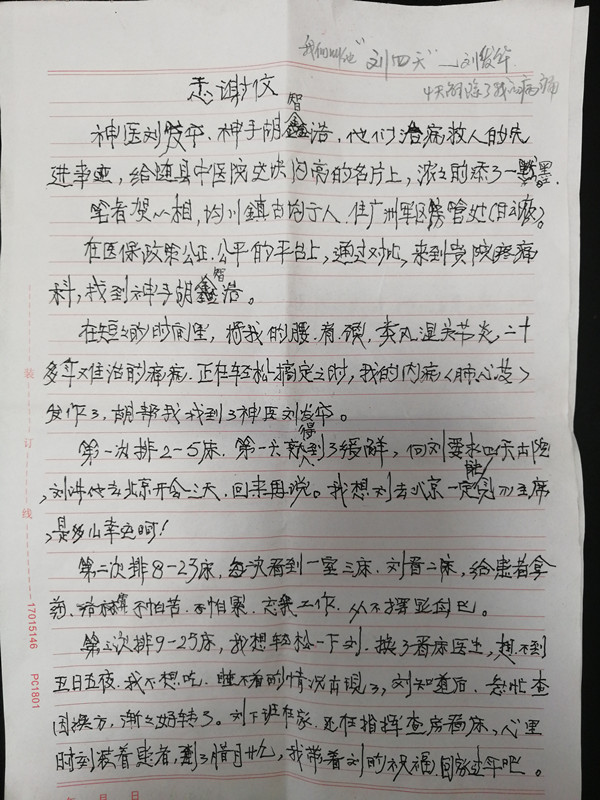 我们叫他"刘四天"—刘发华
4天解除了我的病痛
感谢信
神医刘发华、神手胡智浩,他们治病救人的先
进事迹,给随县中医院这块闪亮的名片上,浓浓的添了一墨.
笔者贺从相,均川鎮古均干人,住广州军区房管处(
在医保政策公正.公平的平台上,通过对比,来到贵院疼痛
科,找到神手胡智浩。
在短短的时间里,将我的腰.肩.颈,类风湿关节炎,二十
多年难治的痛病.正在轻松搞定之时,我的内病<肺心病>
发作了,胡帮我找到了神医刘发华。
第一次排2-5床.第一天就得到了缓解,向刘要求四天出院
,刘讲他去北京开会三天,回来再说。我想刘去北京一定能见习主席
,是多么幸运啊!
第二次排8-23床,每次看到一室三床.刘看二床,给患者拿
药、 不怕苦.不怕累.忘我工作.从不摆 自己。
第三次排9-25床,我想轻松一下刘.换了看床医生,想不到
五日五夜.我不想吃.睡不着的情况出现了,刘知道后.急忙查
因换方,渐渐好转了。刘下班在家.还在指挥查房看床,心里
时刻装着患者,到了腊月廿九,我带着刘的祝福回家过年吧。
装
订
线
17015146
PC1801
年 月 日